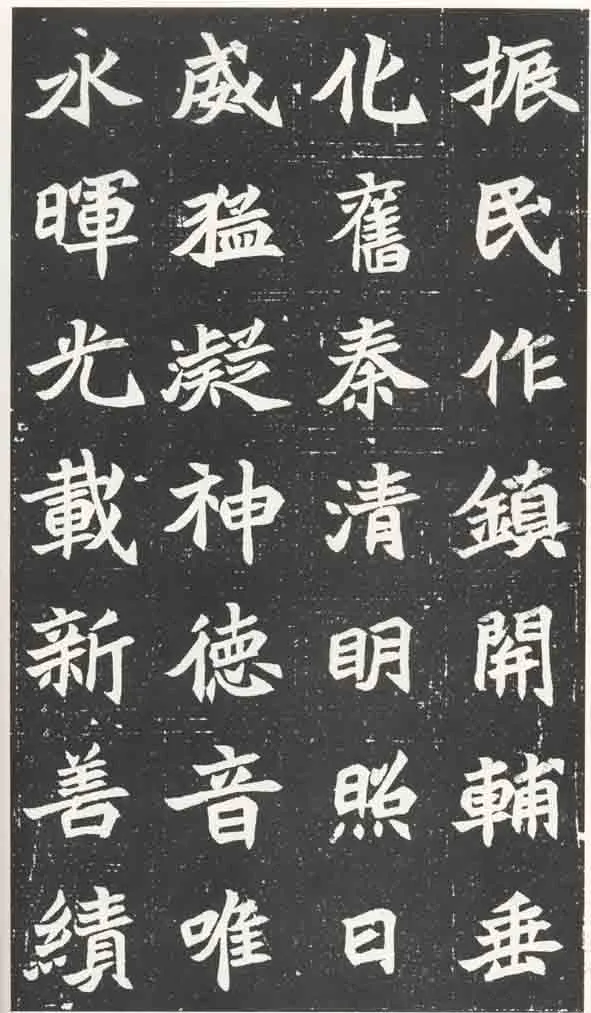 振民作鎮開輔垂
化舊秦清明照日
威猛凝神德音唯
永暉光載新善績